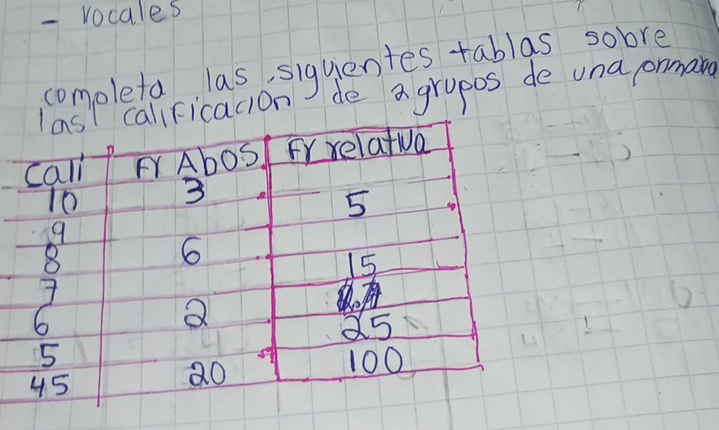 - vocales
completa las siguientes tablas sobre
las calificación de 2 grupos de una
Cali Fr Abos Fr relativa
10 3
9 5
8 6
7 15
6 2
5 25
45 20 100